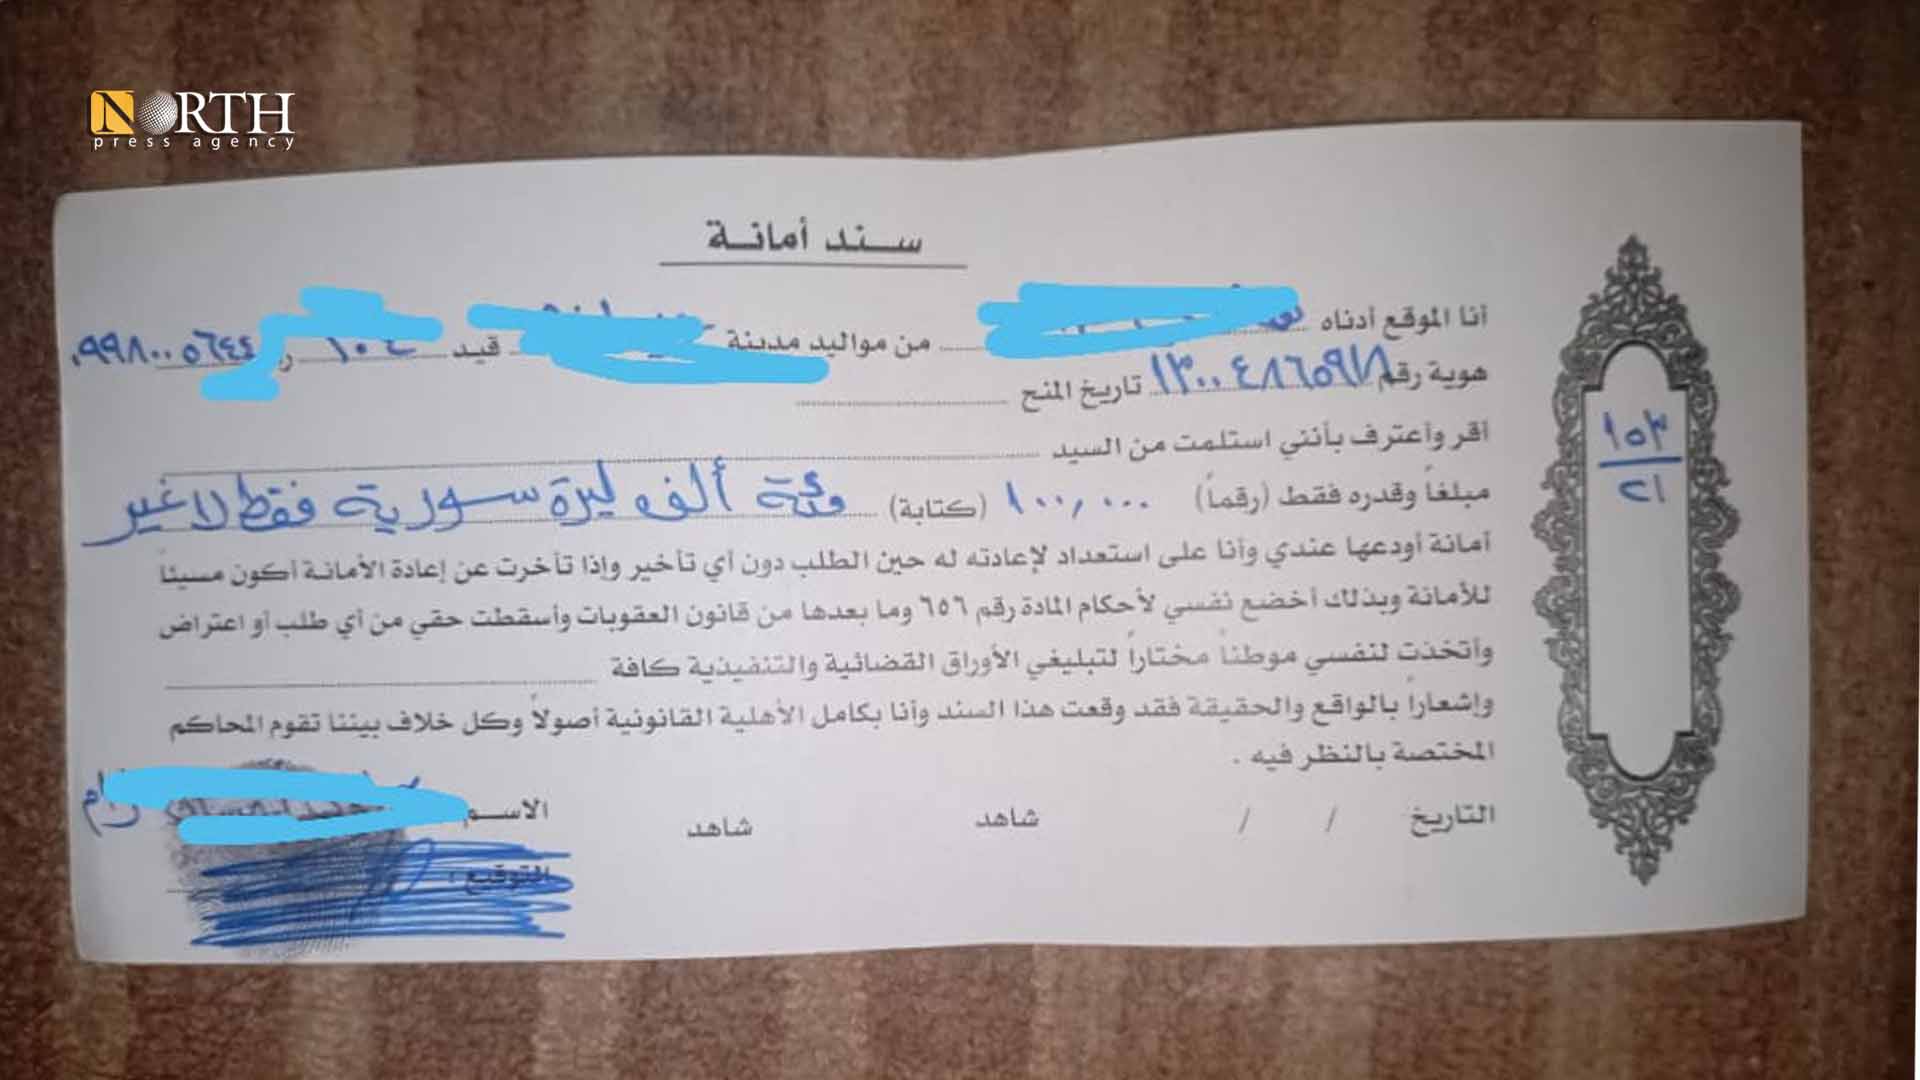 NORTH
press agency
سند أمانة
أنا الموقع أدناه من مواليد مدينة قيد ١٠٤ ر ٠٩٩٨٠٠٥٦٤٤
هوية رقم ١٣٠٠٤٨٦٥٩٨ تاريخ المنح
أقر وأعترف بأنني استلمت من السيد
مبلغاً وقدره فقط (رقماً) ١٠٠,٠٠٠ (كتابة) مئة ألف ليرة سورية فقط لا غير
أمانة أودعها عندي وأنا على استعداد لإعادته له حين الطلب دون أي تأخير وإذا تأخرت عن إعادة الأمانة أكون مسيئاً
للأمانة وبذلك أخضع نفسي لأحكام المادة رقم ٦٥٦ وما بعدها من قانون العقوبات وأسقطت حقي من أي طلب أو اعتراض
وأتخذت لنفسي موطناً مختاراً لتبليغي الأوراق القضائية والتنفيذية كافة
وإشعاراً بالواقع والحقيقة فقد وقعت هذا السند وأنا بكامل الأهلية القانونية أصولاً وكل خلاف بيننا تقوم المحاكم
المختصة بالنظر فيه .
التاريخ / / شاهد شاهد الاسم
التوقيع :
١٥٣
٢١